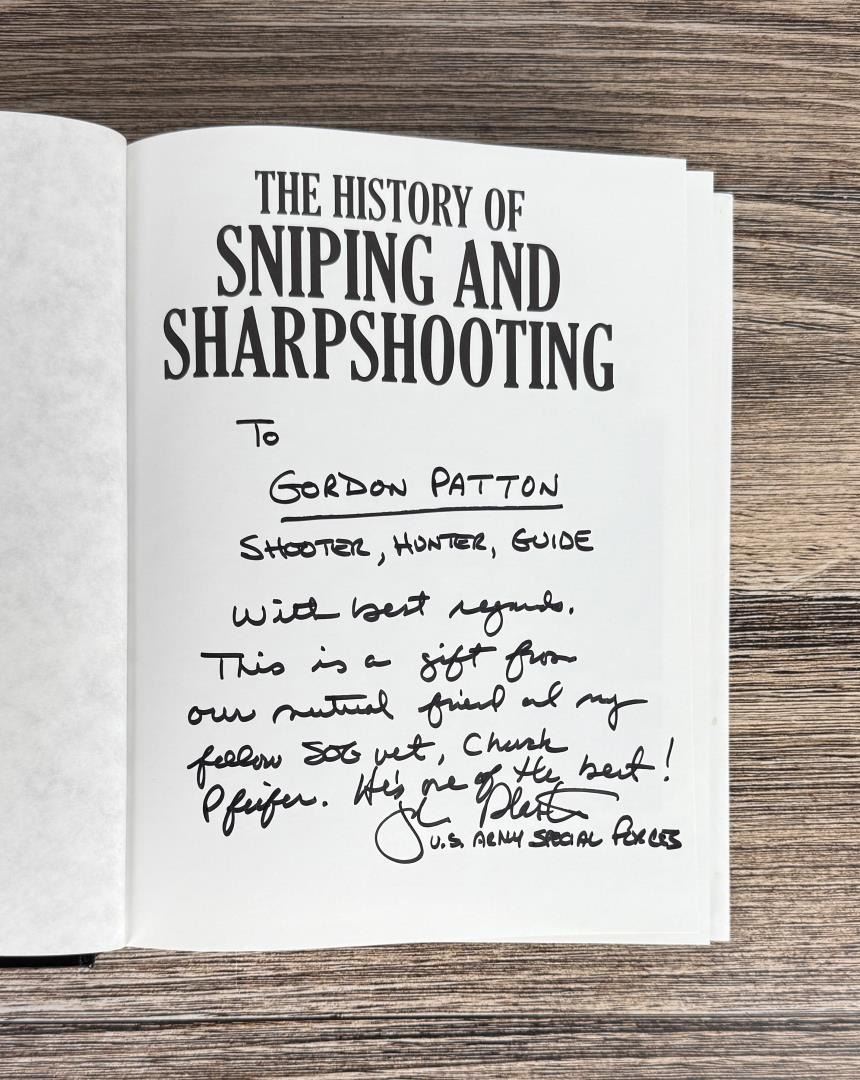 THE HISTORY OF
SNIPING AND
SHARPSHOOTING
To
GORDON PATTON
SHOOTER, HUNTER, GUIDE
With best regards.
This is a gift from
our mutual friend and my
fellow SOG vet, Chuck
Pfeifer. He's one of the best!
John Plaster
U.S. ARMY SPECIAL FORCES